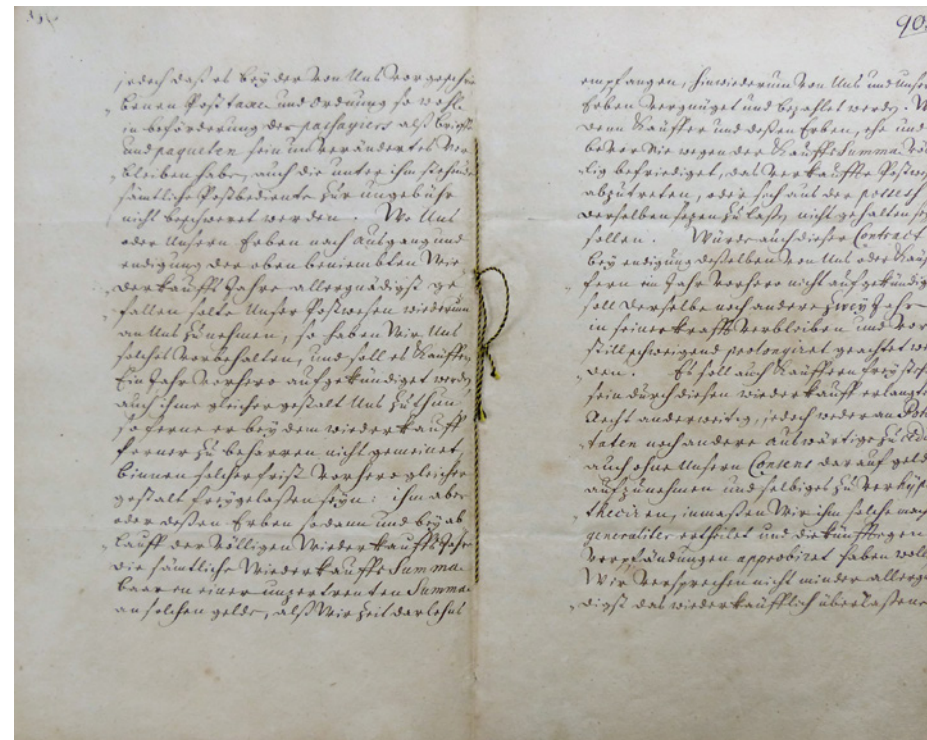 90.
jedoch daß es bey der von Uns vorgeschrie
benen Posttaxe und Ordnung so wohl
in beförderung der passagiers alß brieffe
und paqueten sein unverändertes Ver
bleiben habe, auch die unter ihm stehende
sämtliche Postbediente zur ungebühr
nicht beschweret werden. Wo Uns
oder Unsern Erben nach ausgang und
endigung der oben beniembten Wie
derkauffs Jahre allergnädigst ge
fallen solte Unser Postwesen wiederum
an Uns zu nehmen, so haben Wir Uns
solches vorbehalten, und soll es Käuffern
Ein Jahr vorhero aufgekündiget werden
auch ihme gleicher gestalt Uns zu thun
soferne er bey dem wiederkauff
ferner zu beharren nicht gemeinet,
binnen solcher frist vorhero gleicher
gestalt freygelaßen seyn: ihm aber
oder deßen Erben sodann und bey ab
lauff der völligen Wiederkauffs Jahre
die sämtliche Wiederkauffs Summa
baar in einer unzertrenten Summa
an solchen gelde, alß Wir zeit darlehns
empfangen, hinwiederum von Uns und Unsern
Erben vergnüget und bezahlet werden.
denn Käuffer und deßen Erben, ehe und
bevor Sie wegen der Kauffs Summa völ
lig befriediget, das verkauffte Postwesen
abzutreten, oder sich aus der possess
derselben sezen zu laßen, nicht gehalten seyn
sollen. Würde auch dieser Contract
bey endigung deßelben von Uns oder Käuf
fern ein Jahr vorhero nicht aufgekündiget
soll derselbe noch andere zwey Jahr
in seiner krafft verbleiben und vor
stillschweigend prolongiret geachtet wer
den. Es soll auch Käuffern frey stehen
sein durch diesen wiederkauff erlangtes
Recht anderweitig, jedoch weder an Poten
taten noch andere auswärtige zu cedi
auch ohne Unsern Consens darauf geld
aufzunehmen und selbiges zu verhypo
theciren, inmaßen Wir ihm solche
generaliter ertheilet und die künfftigen
Verpfändungen approbiret haben wollen
Wir versprechen nicht minder allergnä
digst das wiederkäufflich überlaßene